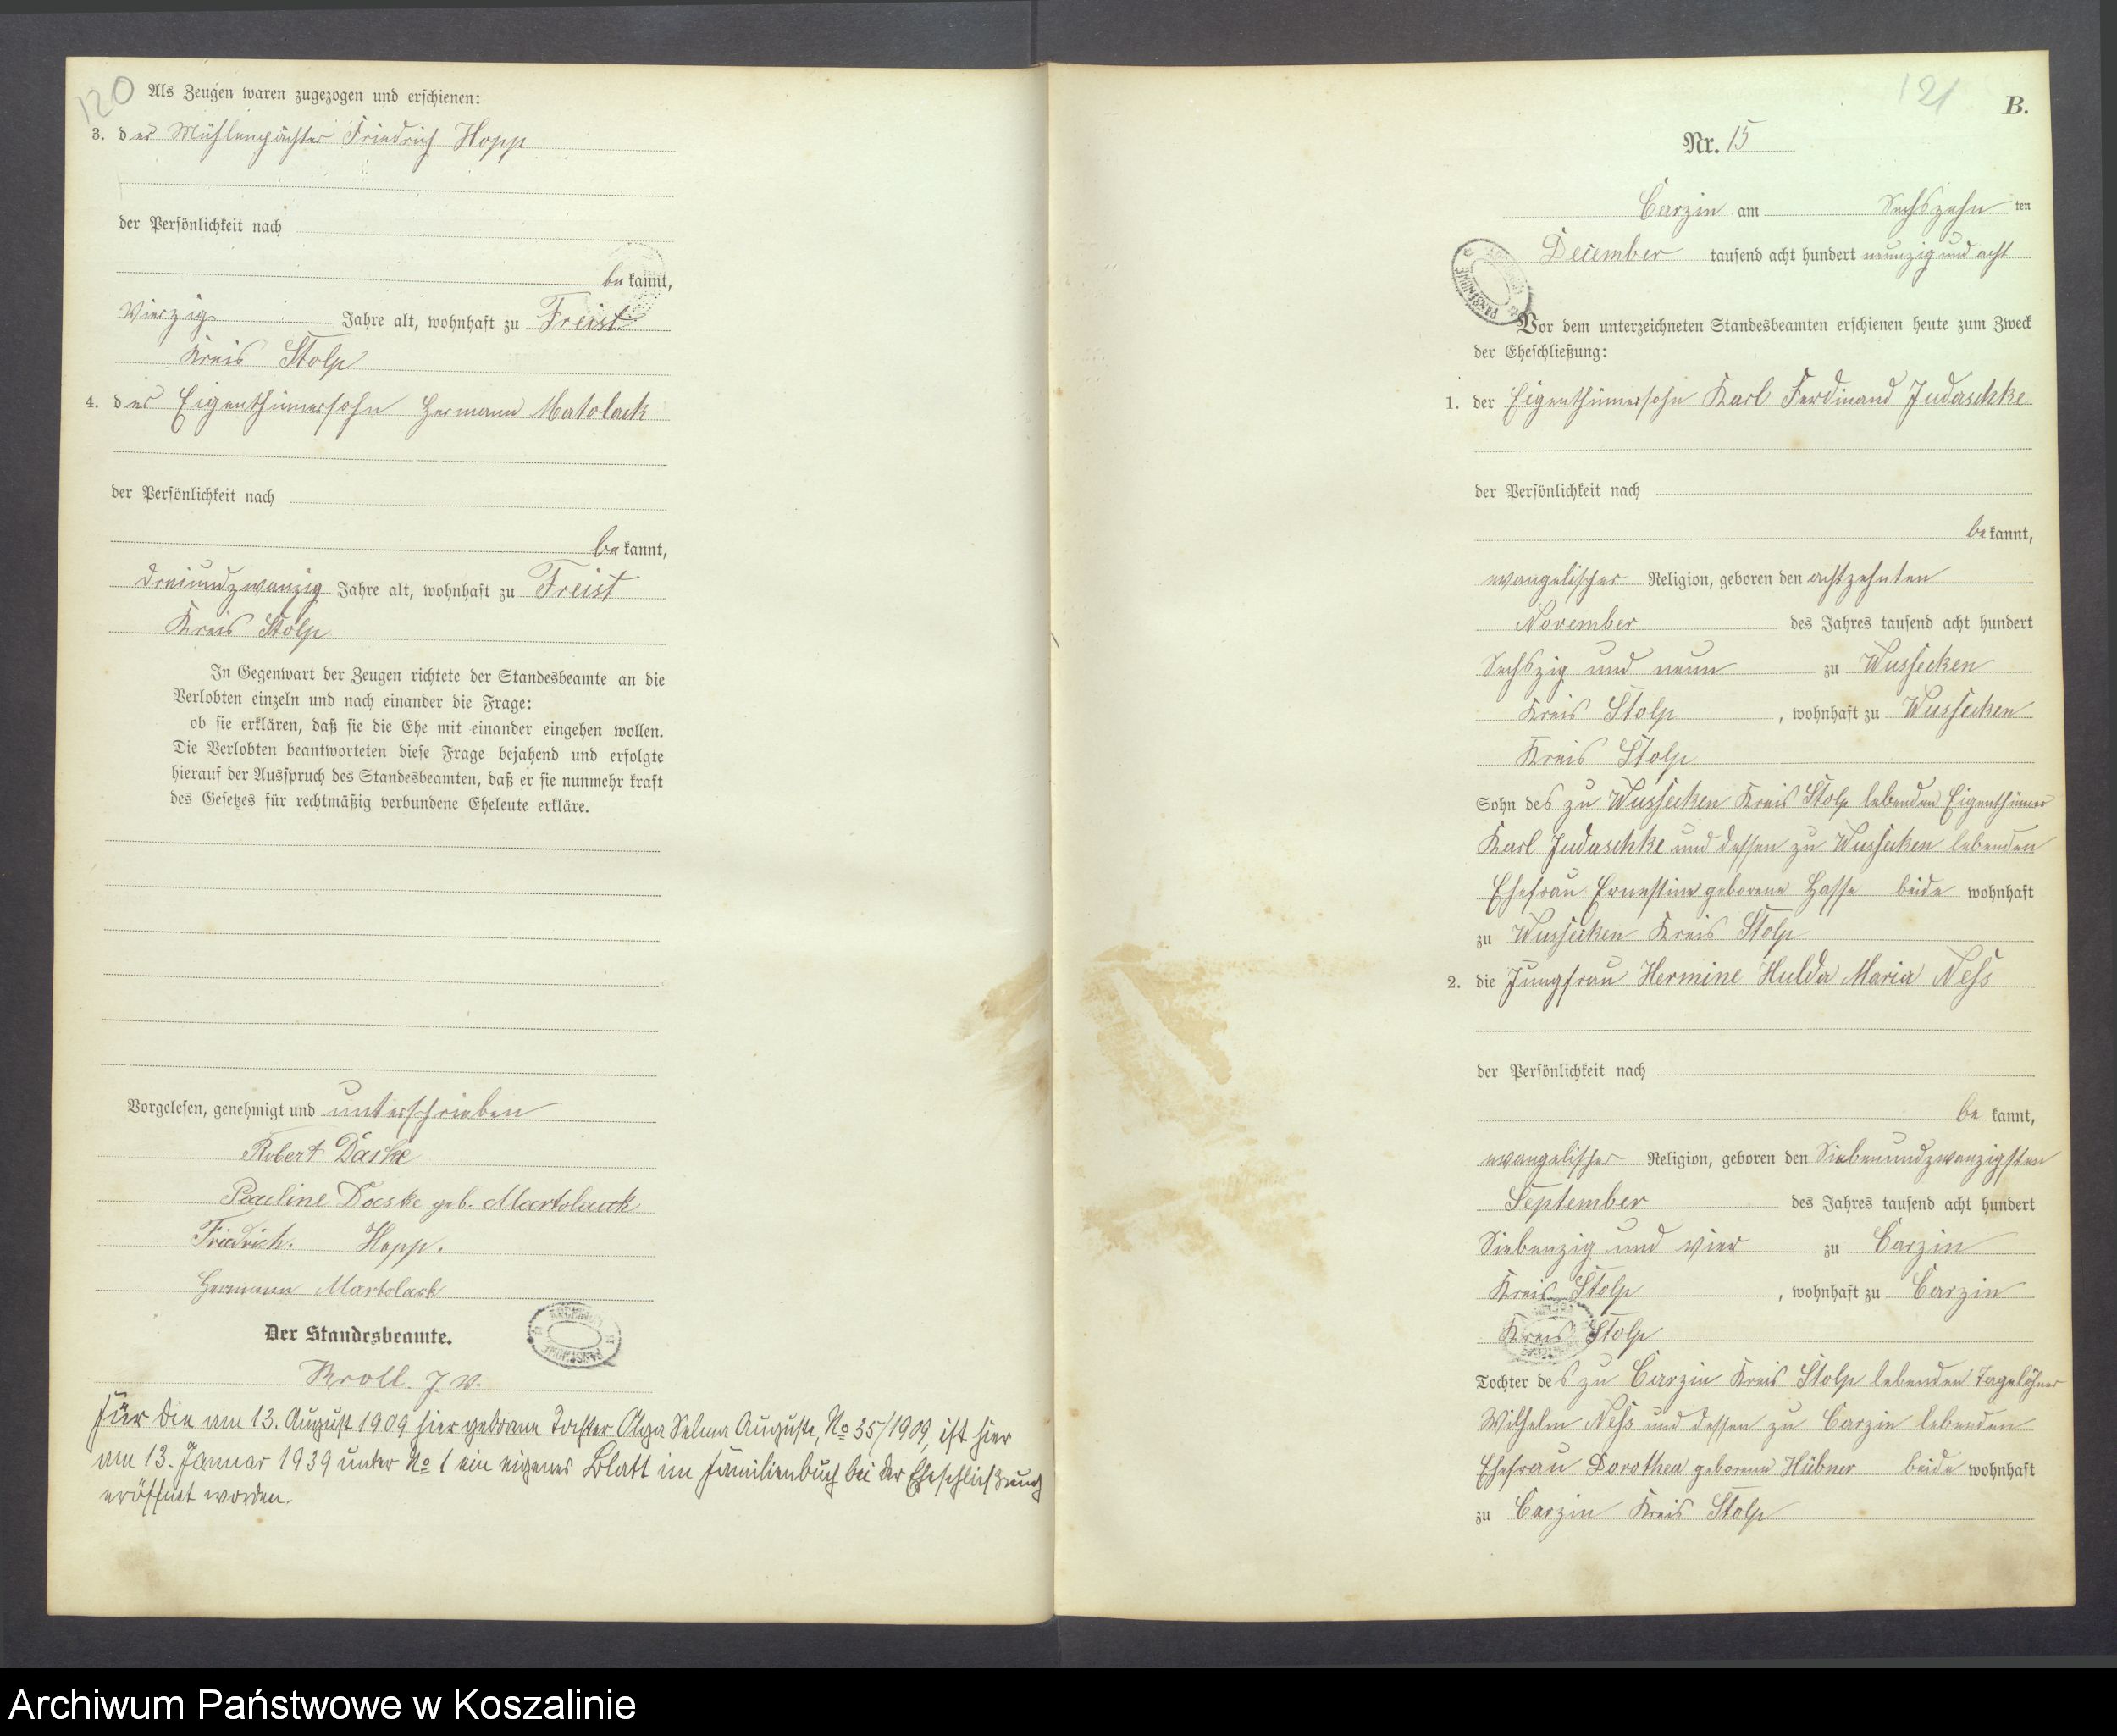 120
Als Zeugen waren zugezogen und erschienen:
3. der Mühlenpächter Friedrich Hopp
der Persönlichkeit nach
be kannt,
Vierzig Jahre alt, wohnhaft zu Freist
Kreis Stolp
4. der Eigenthümersohn Hermann Matolack
der Persönlichkeit nach
be kannt,
dreiundzwanzig Jahre alt, wohnhaft zu Freist
Kreis Stolp
In Gegenwart der Zeugen richtete der Standesbeamte an die
Verlobten einzeln und nach einander die Frage:
ob sie erklären, daß sie die Ehe mit einander eingehen wollen.
Die Verlobten beantworteten diese Frage bejahend und erfolgte
hierauf der Ausspruch des Standesbeamten, daß er sie nunmehr kraft
des Gesetzes für rechtmäßig verbundene Eheleute erkläre.
Vorgelesen, genehmigt und unterschrieben
Robert Daske
Pauline Daske geb. Martolack
Friedrich. Hopp.
Hermann Martolack
Der Standesbeamte.
Kroll. J. V.
Für die am 13. August 1909 hier geborene Tochter Olga Selma Auguste, No 35/1909, ist hier
am 13. Januar 1939 unter No 1 ein eigenes Blatt im Familienbuch bei der Eheschließung
eröffnet worden.
121
B.
Nr. 15
Carzin am Sechszehn ten
December tausend acht hundert neunzig und acht
Vor dem unterzeichneten Standesbeamten erschienen heute zum Zweck
der Eheschließung:
1. der Eigenthümersohn Karl Ferdinand Judaschke
der Persönlichkeit nach
be kannt,
evangelischer Religion, geboren den achtzehnten
November des Jahres tausend acht hundert
Sechszig und neun zu Wussecken
Kreis Stolp, wohnhaft zu Wussecken
Kreis Stolp
Sohn des zu Wussecken Kreis Stolp lebenden Eigenthümer
Karl Judaschke und dessen zu Wussecken lebenden
Ehefrau Ernestine geborene Hasse beide wohnhaft
zu Wussecken Kreis Stolp
2. die Jungfrau Hermine Hulda Maria Ness
der Persönlichkeit nach
be kannt,
evangelischer Religion, geboren den Siebenundzwanzigsten
September des Jahres tausend acht hundert
Siebenzig und vier zu Carzin
Kreis Stolp, wohnhaft zu Carzin
Kreis Stolp
Tochter des zu Carzin Kreis Stolp lebenden Tagelöhner
Wilhelm Ness und dessen zu Carzin lebenden
Ehefrau Dorothea geborene Hübner beide wohnhaft
zu Carzin Kreis Stolp
Archiwum Państwowe w Koszalinie